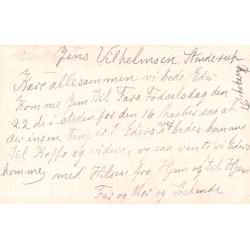 Jens Vilhelmsen Anderup
Kære allesammen vi bede Eder
komme hen til Fars Födselsdag den
22 de i steden for den 16 haaber saa at
der insen ting er i Eders bedes komme
til Kaffe og videre, og saa vente vi Eders
komme, med Hilsen fra Hjem og til Hjem
Far og Mor og Söskende